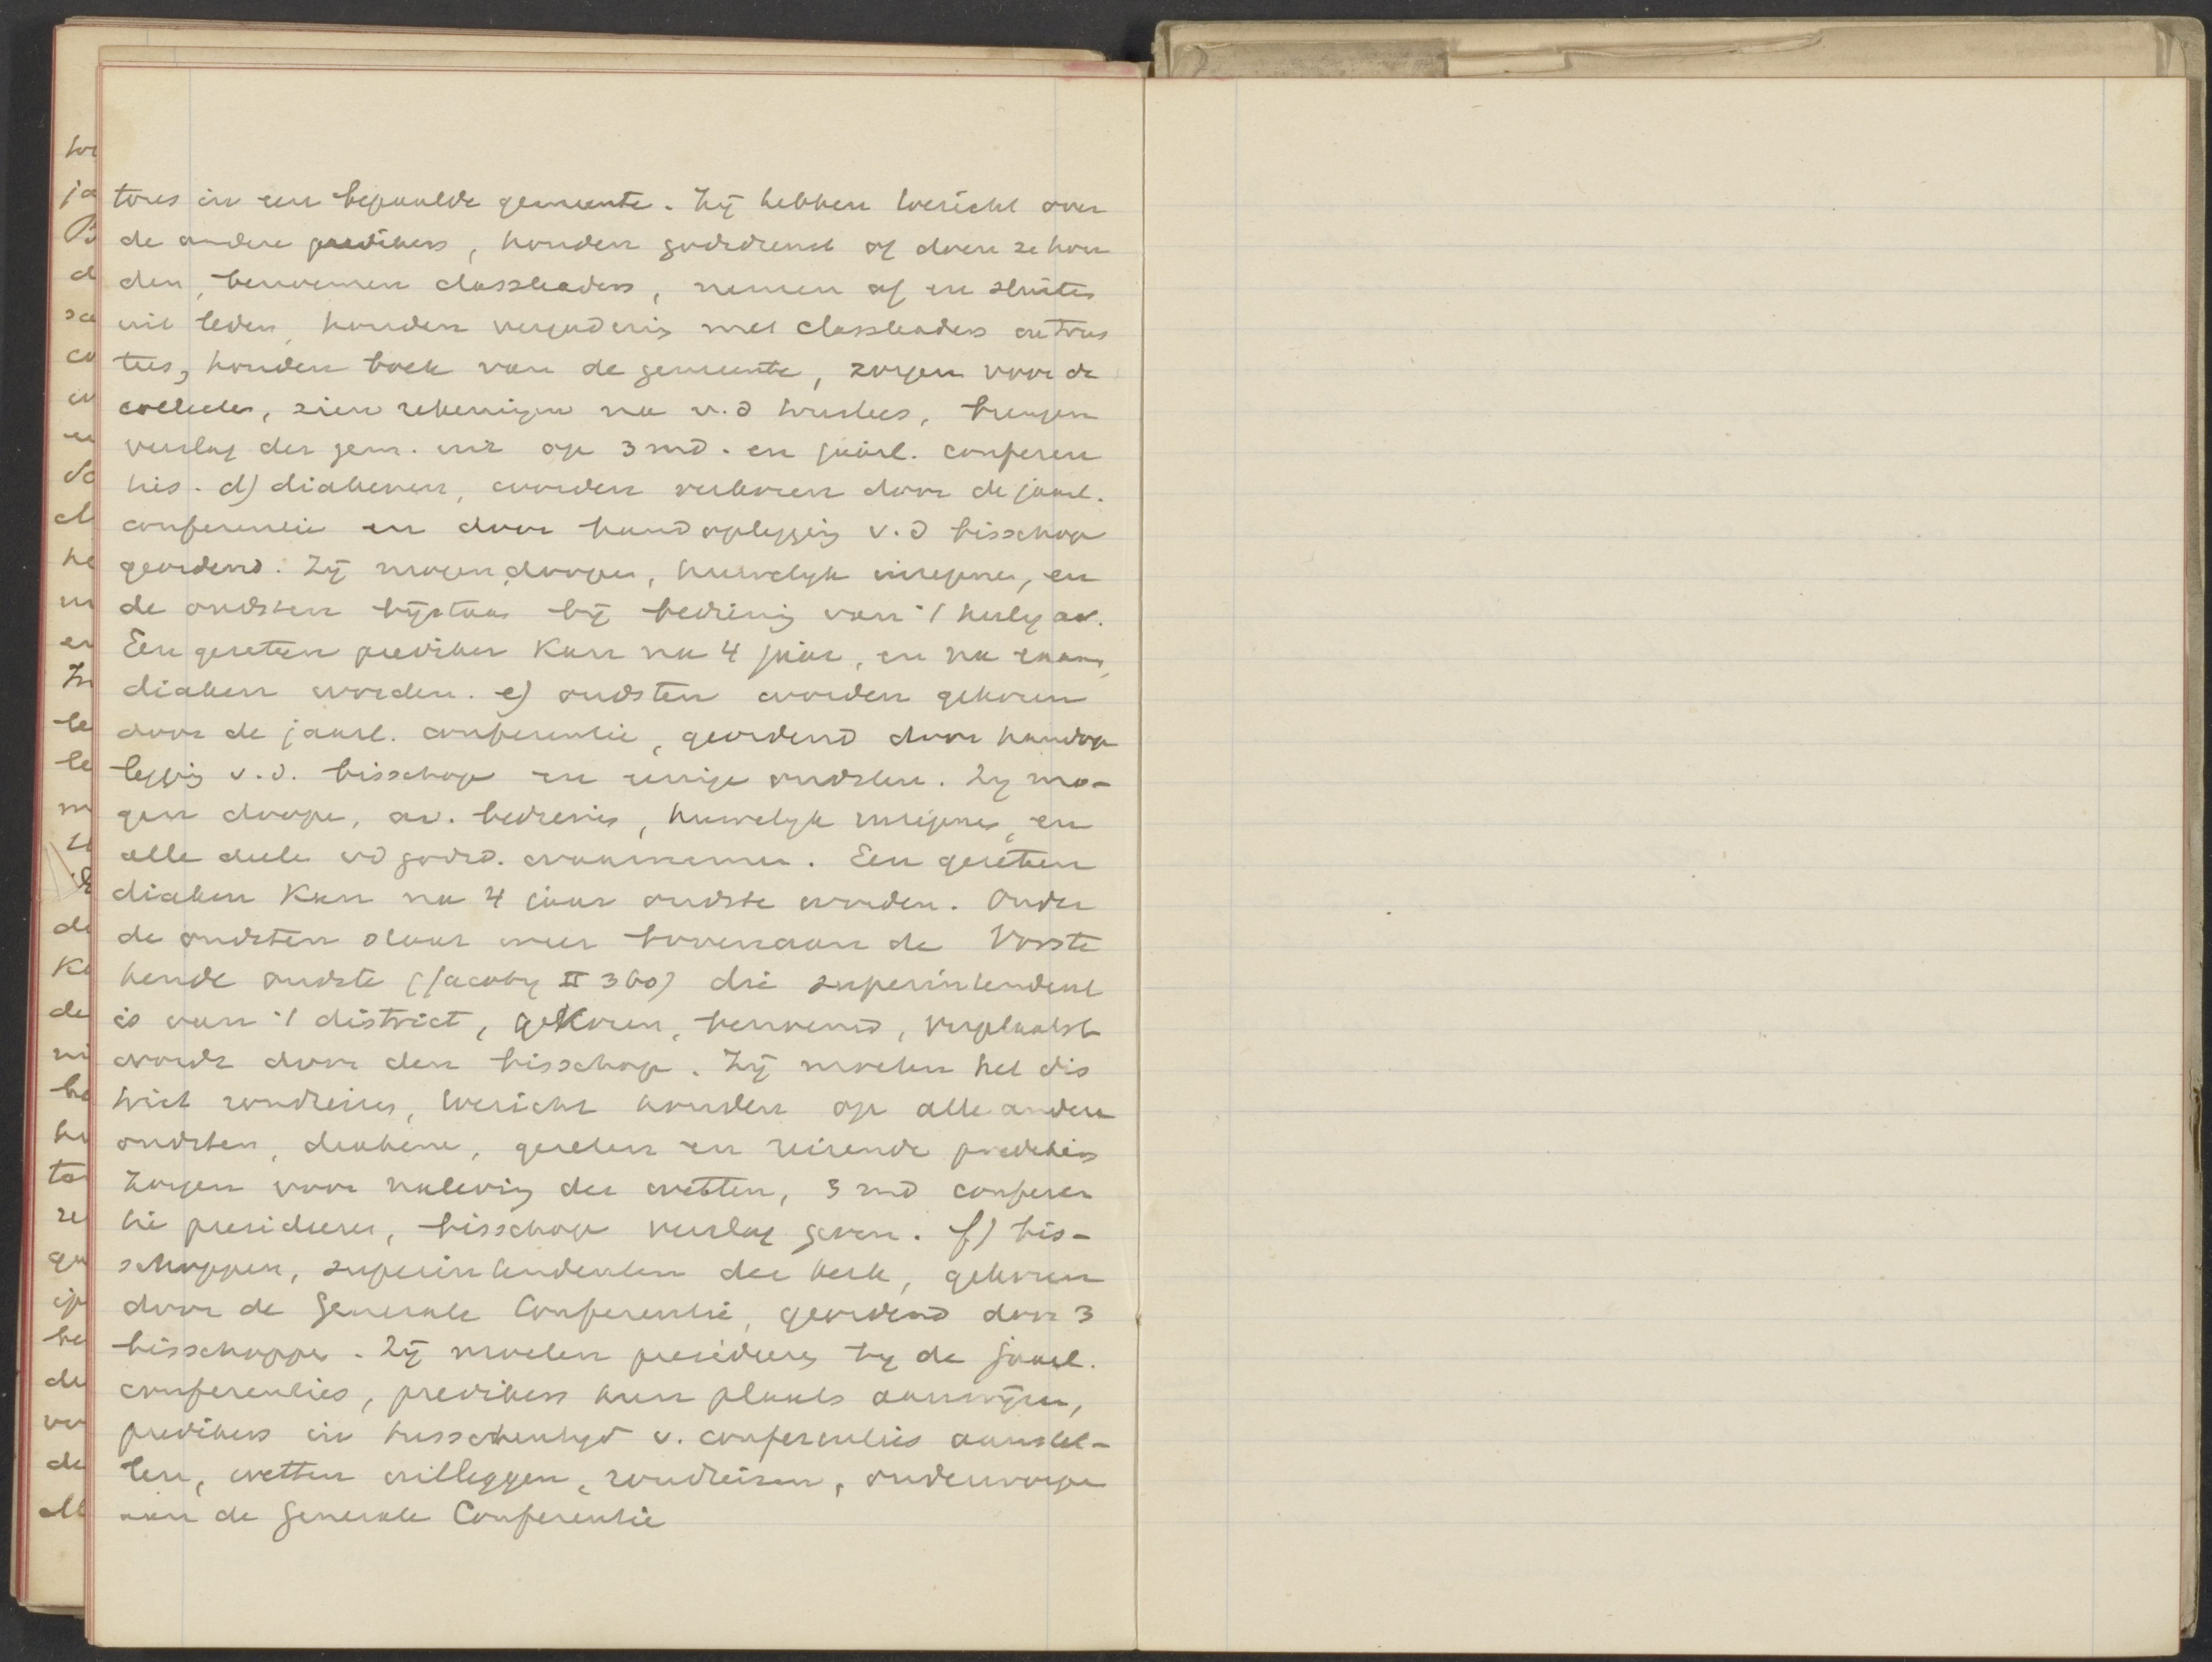 tores in een bepaalde gemeente. Zij hebben toezicht over
de andere predikers, houden godsdienst of doen ze hou
den, benoemen classleaders, nemen af en sluiten
uit leden, houden vergadering met classleaders en trus
tees, houden boek van de gemeente, zorgen voor de
collectes, zien rekeningen na v.d trustees, brengen
verslag der gem. uit op 3 md. en jaarl. conferen
ties. d) diakenen, worden verkoren door de jaarl.
conferentie en door handoplegging v.d bisschop
geordend. Zij mogen doopen, huwelijk inzegenen, en
de oudsten bijstaan bij bediening van 't heilig av.
Een gezeten prediker kan na 4 jaar, en na exam,
diaken worden. e) oudsten worden gekoren
door de jaarl. conferentie, geordend door handop
legging v.d. bisschop en eenige oudsten. Zij mo-
gen doopen, av. bedienen, huwelijk inzegenen, en
alle deele vd godsd. waarnemen. Een gezeten
diaken kan na 4 jaar oudste worden. Onder
de oudsten staat weer bovenaan de Voorste
hende oudste (Jacoby II 360) die superintendent
is van 't district, gekoren, benoemd, verplaatst
wordt door den bisschop. Zij moeten het dis
trict rondreizen, toezicht houden op alle andere
oudsten, diakenen, gezeten en reizende predikers
zorgen voor naleving der wetten, 3 md conferen
tie presideeren, bisschop verslag geven. f) bis-
schoppen, superintendenten der kerk, gekoren
door de Generale Conferentie, geordend door 3
bisschoppen. Zij moeten presideeren bij de jaarl.
conferenties, predikers hun plaats aanwijzen,
predikers in tusschentijd v. conferenties aanstel-
len, wetten uitleggen, rondreizen, onderworpen
aan de Generale Conferentie